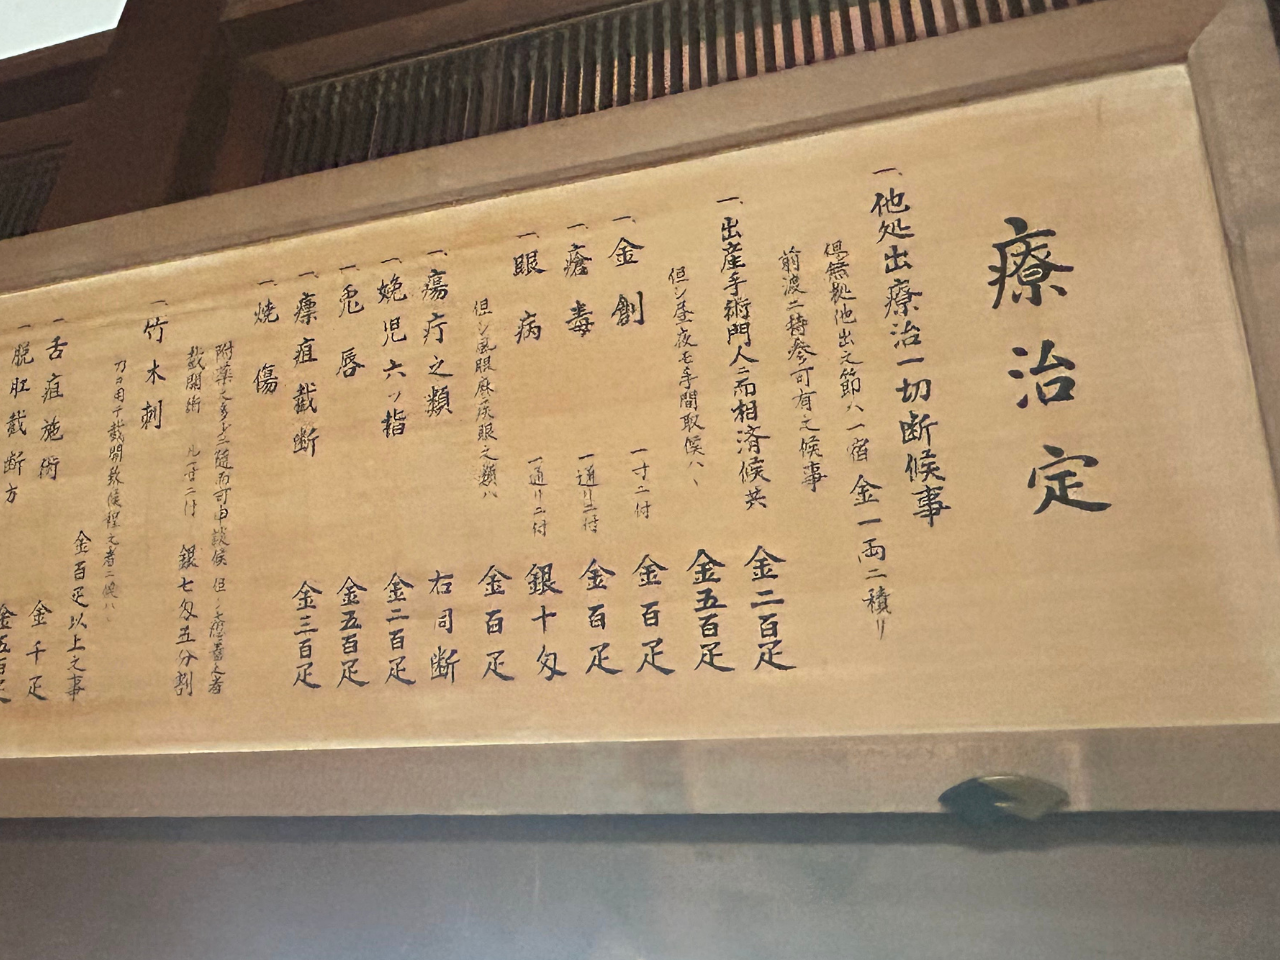 療治定
一、他処出療治一切断候事
但無拠他出之節ハ一宿 金一両二積リ
前渡ニ持参可有之候事
一、出産手術門人ニ而相済候共 金二百疋
但シ昼夜モ手間取候ハヽ 金五百疋
一、金創 一寸ニ付 金百疋
一、瘡毒 一通リニ付 金百疋
一、眼病 一通リニ付 銀十匁
但シ風眼麻疾眼之類ハ 金百疋
一、瘍疔之類 右同断
一、娩児六ツ指 金二百疋
一、兎唇 金五百疋
一、瘭疽截断 金三百疋
一、焼傷
附薬之多少ニ随而可申談候 但シ
截開術 銀七匁五分割
一、竹木刺
刀ヲ用テ截開致候程之者ニ候ハヽ
金百疋以上之事
一、舌疽施術 金千疋
一、脱肛截断方 金五百疋